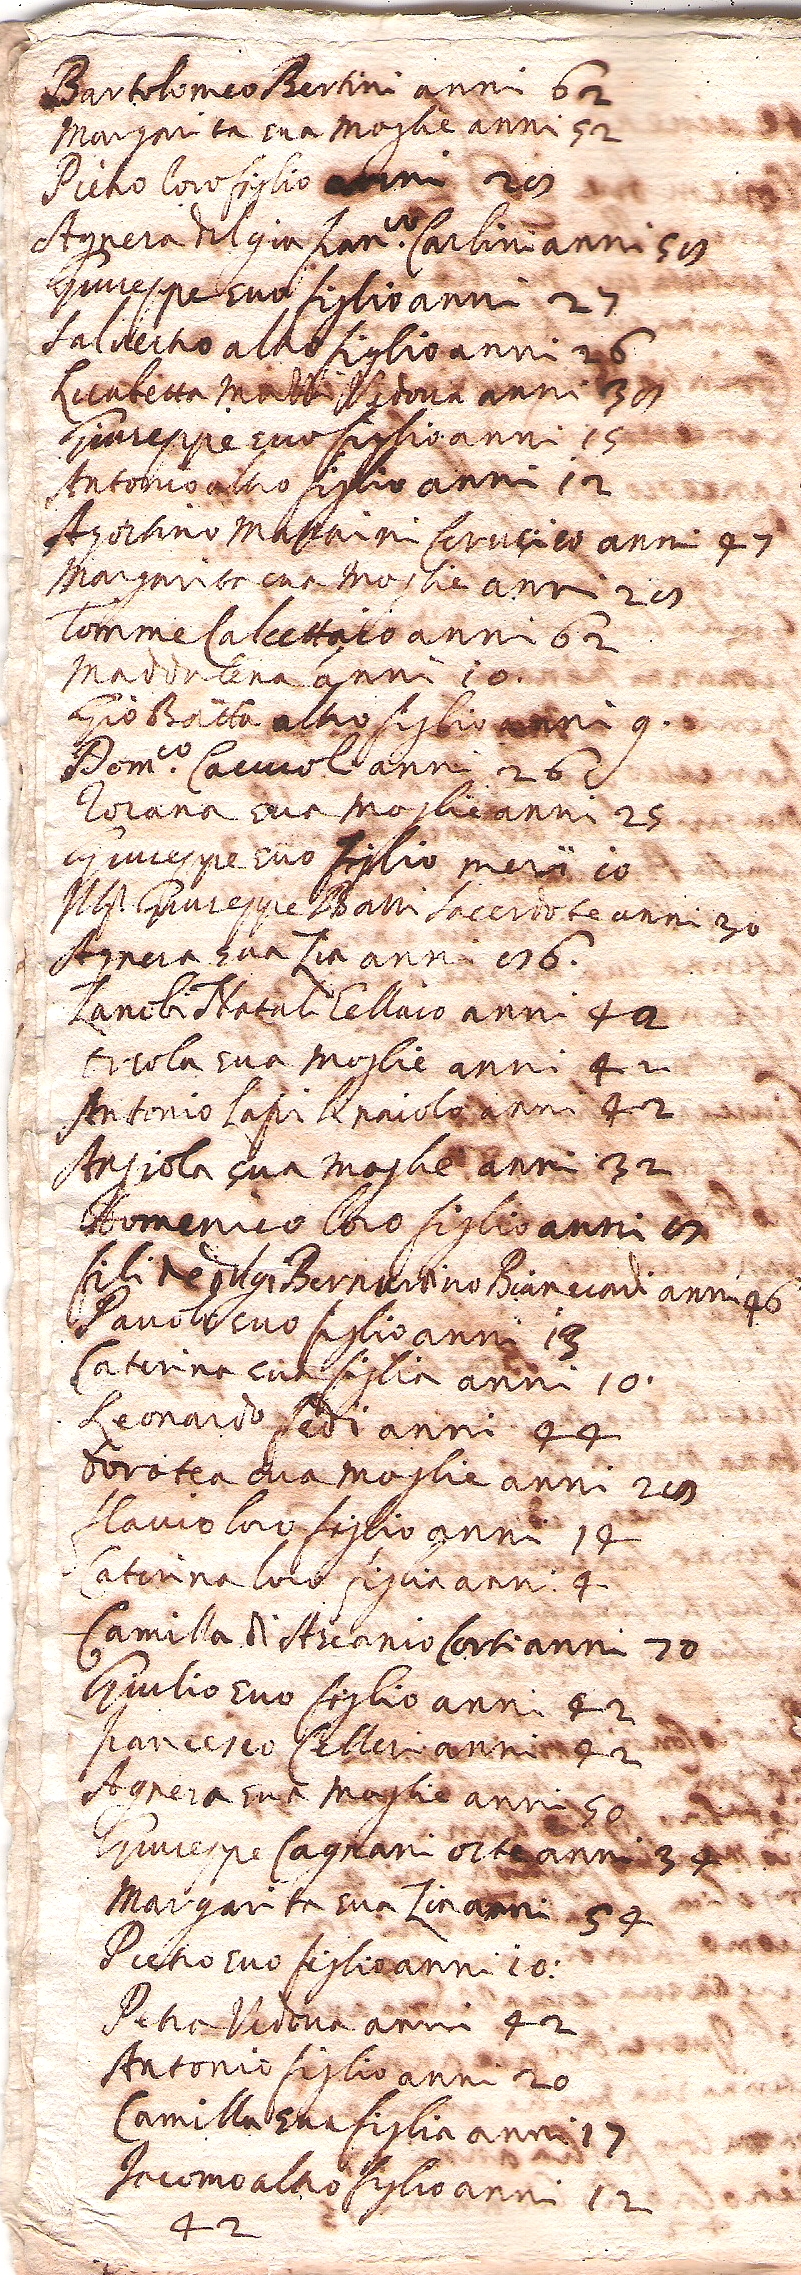 Bartolomeo Bertini anni 62
Margarita sua moglie anni 52
Pietro loro figlio anni 28
Agnesa del gia Fran.co Carlini anni 58
Giuseppe suo figlio anni 27
Salvestro altro figlio anni 26
Lisabetta Matti Vedova anni 38
Giuseppe suo figlio anni 15
Antonio altro figlio anni 12
Agostino Cerusico anni 47
Margarita sua Moglie anni 28
Tomme Calcettaio anni 62
Maddalena anni 10.
Gio Batta altro figlio anni 9.
Dom.co anni 26
Rosana sua Moglie anni 25
Giuseppe suo figlio mesi 10
Giuseppe Sacerdote anni 30
Agnesa sua Zia anni 86.
Zanobi Natali Sellaio anni 42
Orsola sua Moglie anni 42
Antonio Lapi Linaiolo anni 42
Angiola sua moglie anni 32
Domenico loro figlio anni 8
del q Bernardino anni 46
Pauolo suo figlio anni 13
Caterina sua figlia anni 10.
Leonardo Sedi anni 44
Dorotea sua Moglie anni 28
Flavio loro figlio anni 14
Caterina loro figlia anni 4
Camilla di Ascanio Corsi anni 70
Giulio suo figlio anni 42
Francesco Celleri anni 42
Agnesa sua Moglie anni 50
Giuseppe Cagnani oste anni 34
Margarita sua Zia anni 54
Pietro suo figlio anni 10:
Petra Vedova anni 42
Antonio figlio anni 20
Camilla sua figlia anni 17
Jacomo altro figlio anni 12
42